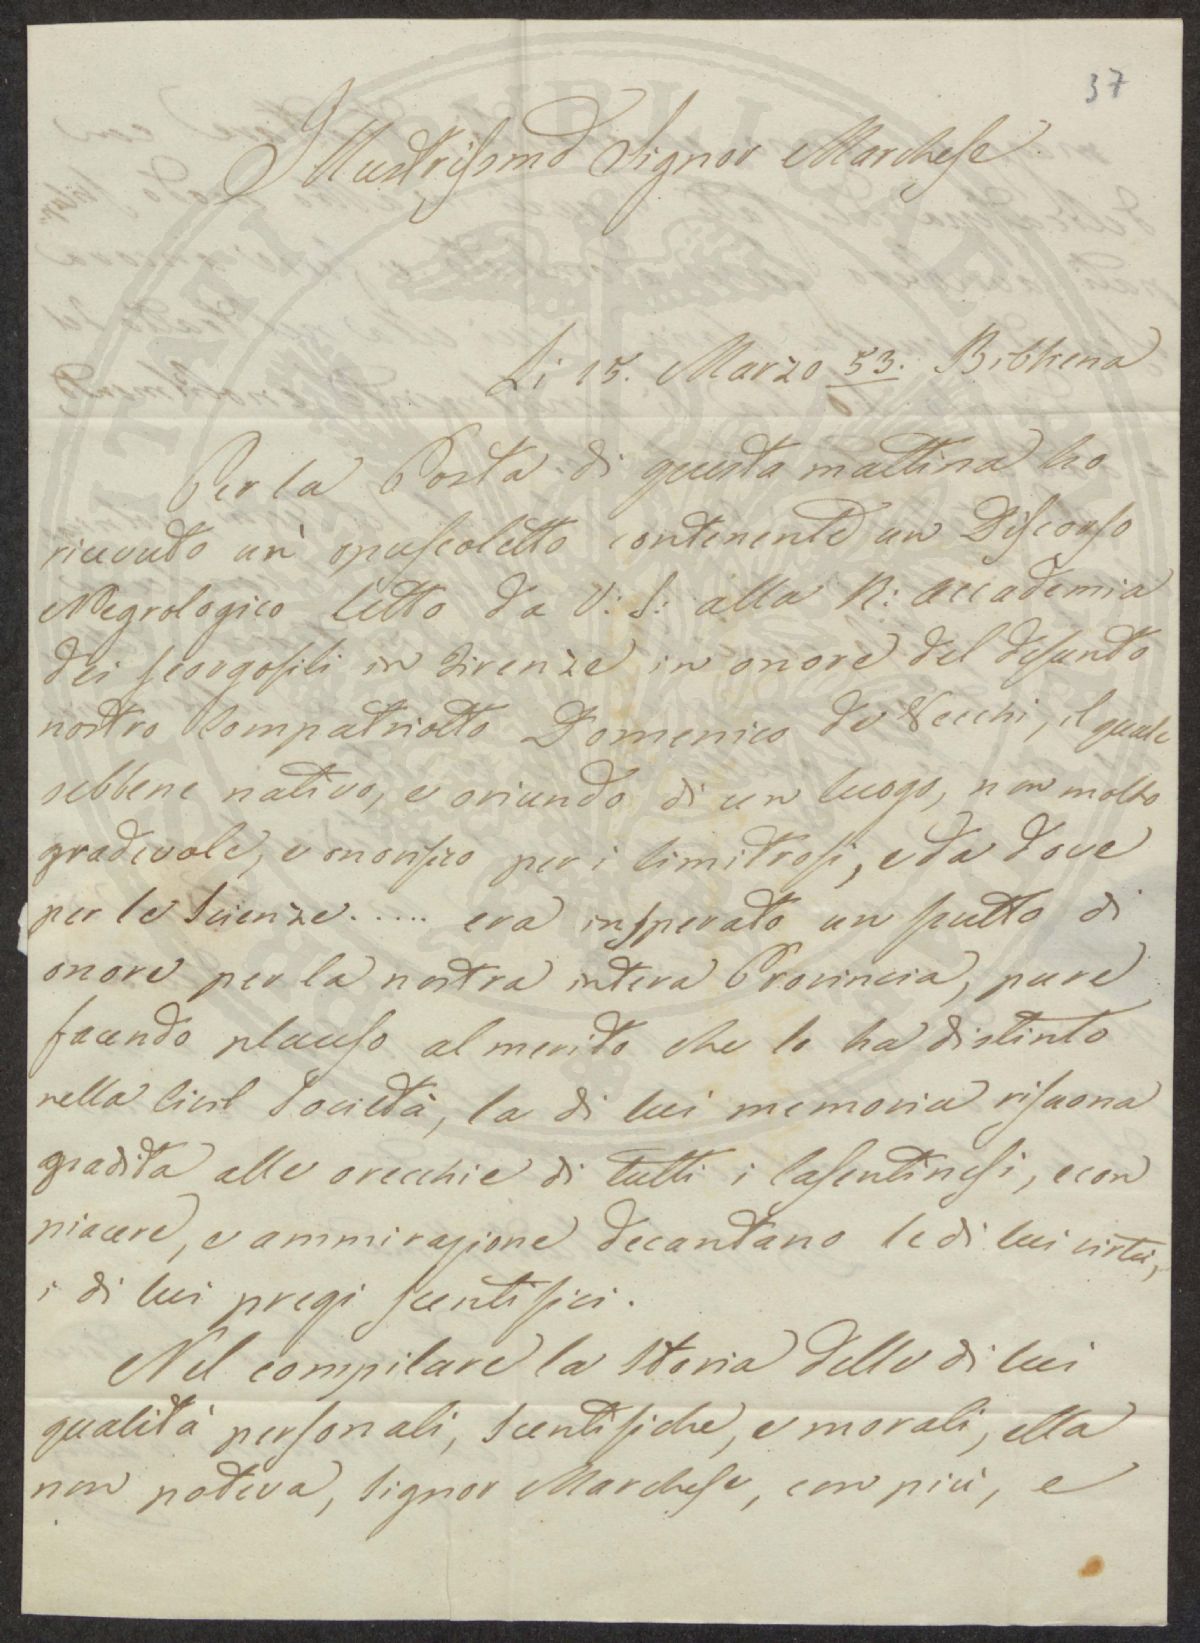 37
Illustrissimo Signor Marchese.
Li 15. Marzo 53. Bibbiena
Per la Posta di questa mattina ho
ricevuto un' opuscoletto contenente un Discorso
Negrologico letto da V: S: alla R: Accademia
dei Georgofili in Firenze in onore del defunto
nostro Compatriotto Domenico de Vecchi, il quale
sebbene nativo, e oriundo di un luogo, non molto
gradevole, e per i limitrofi, e da dove
per le Scienze..... era insperato un frutto di
onore per la nostra intera Provincia, pure
facendo plauso al merito che lo ha distinto
nella Civil Società, la di lui memoria risuona
gradita alle orecchie di tutti i Casentinesi, e con
piacere, e ammirazione decantano le di lui virtù,
i di lui pregi scentifici.
Nel compilare la Storia delle di lui
qualità personali, scentifiche, e morali, ella
non poteva, Signor Marchese, con più, e